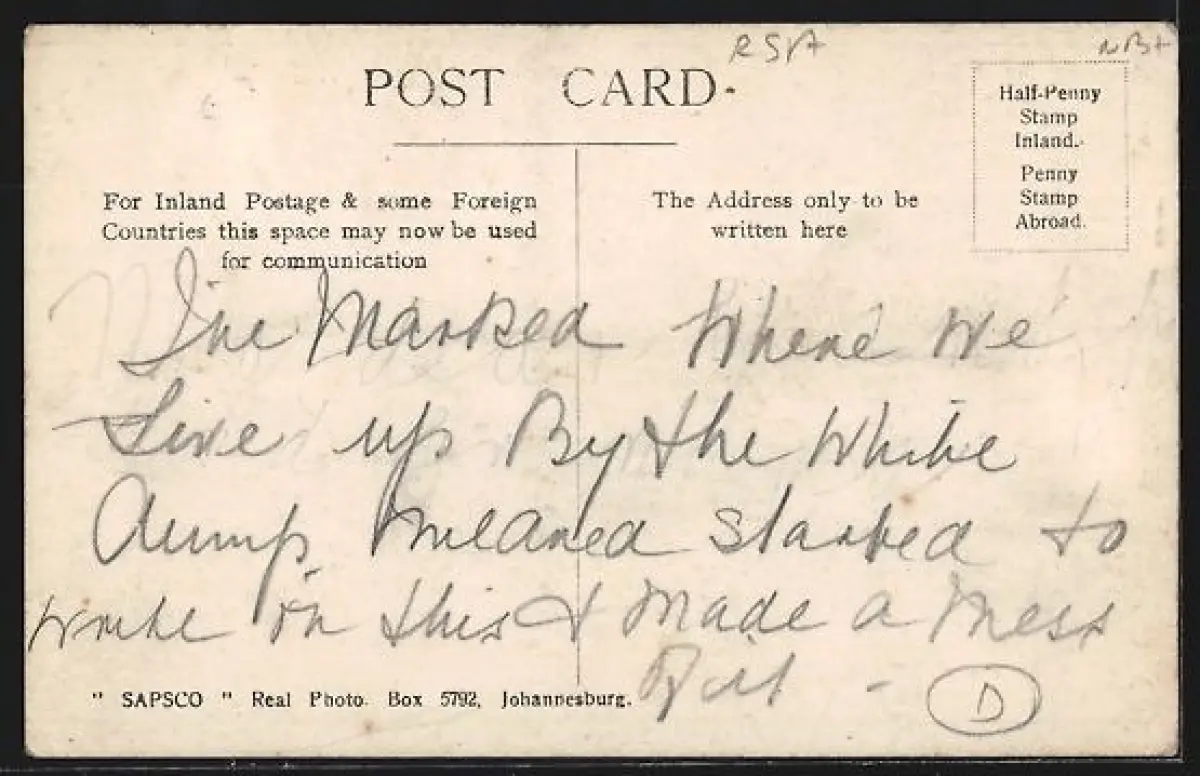 RSA
NB+
POST CARD.
Half-Penny
Stamp
Inland.
Penny
Stamp
Abroad.
For Inland Postage & some Foreign
Countries this space may now be used
for communication
The Address only to be
written here
I've Marked Where We
Live up By the White
Dump. Mildred started to
write on this & Made a Mess
of it -
D
" SAPSCO " Real Photo. Box 5792, Johannesburg.